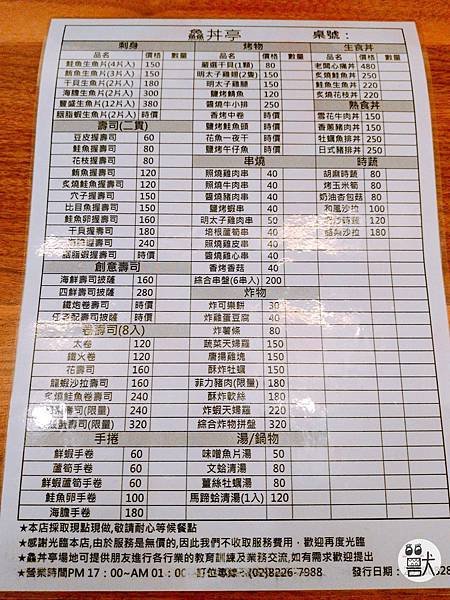 鱻丼亭 桌號：
刺身
品名 價格 數量
鮭魚生魚片(4片入) 150
鮪魚生魚片(3片入) 150
旗魚生魚片(3片入) 210
海膽生魚片(2片入) 300
豐盛生魚片(12片入) 380
胭脂蝦生魚片(2片入) 時價
壽司(二貫)
豆皮握壽司 60
鮭魚握壽司 80
花枝握壽司 80
鮪魚握壽司 120
炙燒鮭魚握壽司 120
穴子握壽司 150
比目魚握壽司 150
鮭魚卵握壽司 160
干貝握壽司 180
握壽司 240
胭脂蝦握壽司 時價
創意壽司
海鮮壽司披薩 160
四鮮壽司披薩 280
鐵炮卷壽司 時價
配壽司披薩 時價
卷壽司(8入)
太卷 120
鐵火卷 120
花壽司 160
龍蝦沙拉壽司 160
炙燒鮭魚卷壽司 240
壽司(限量) 240
壽司(限量) 320
手捲
鮮蝦手卷 60
蘆筍手卷 60
鮮蝦蘆筍手卷 60
鮭魚卵手卷 100
海膽手卷 180
烤物
品名 價格 數量
嚴選干貝(1顆) 80
明太子雞翅(2隻) 150
明太子雞腿 150
鹽烤鯖魚 120
醬燒牛小排 250
香烤中卷 時價
鹽烤鮭魚頭 時價
花魚一夜干 時價
鹽烤午仔魚 時價
串燒
照燒雞肉串 40
照燒牛肉串 40
醬燒雞肉串 40
鹽烤蝦串 40
明太子雞肉串 50
培根蘆筍串 40
照燒雞皮串 40
醬燒雞心串 40
香烤香菇 40
綜合串盤(6串入) 200
炸物
炸可樂餅 30
炸雞蛋豆腐 40
炸薯條 80
蔬菜天婦羅 150
唐揚雞塊 150
酥炸牡蠣 150
菲力豬肉(限量) 180
酥炸軟絲 180
炸蝦天婦羅 220
綜合炸物拼盤 320
湯/鍋物
味噌魚片湯 50
文蛤清湯 80
薑絲牡蠣湯 80
馬蹄蛤清湯(1入) 120
生食丼
品名 價格 數量
老闆心痛丼 480
炙燒鮭魚丼 250
鮭魚生魚丼 220
炙燒花枝丼 220
熟食丼
雪花牛肉丼 150
香蔥豬肉丼 150
牡蠣魚排丼 250
日式豬排丼 250
時蔬
胡麻時蔬 80
烤玉米筍 80
奶油杏包菇 80
和風沙拉 100
時蔬 120
沙拉 180
★本店採取現點現做,敬請耐心等候餐點
★感謝光臨本店,由於服務是無價的,因此我們不收取服務費用，歡迎再度光臨
★鱻丼亭場地可提供朋友進行各行業的教育訓練及業務交流,如有需求歡迎提出
★營業時間PM 17：00~AM 01：00 訂位專線：(02)8226-7988 發行日期：
獸